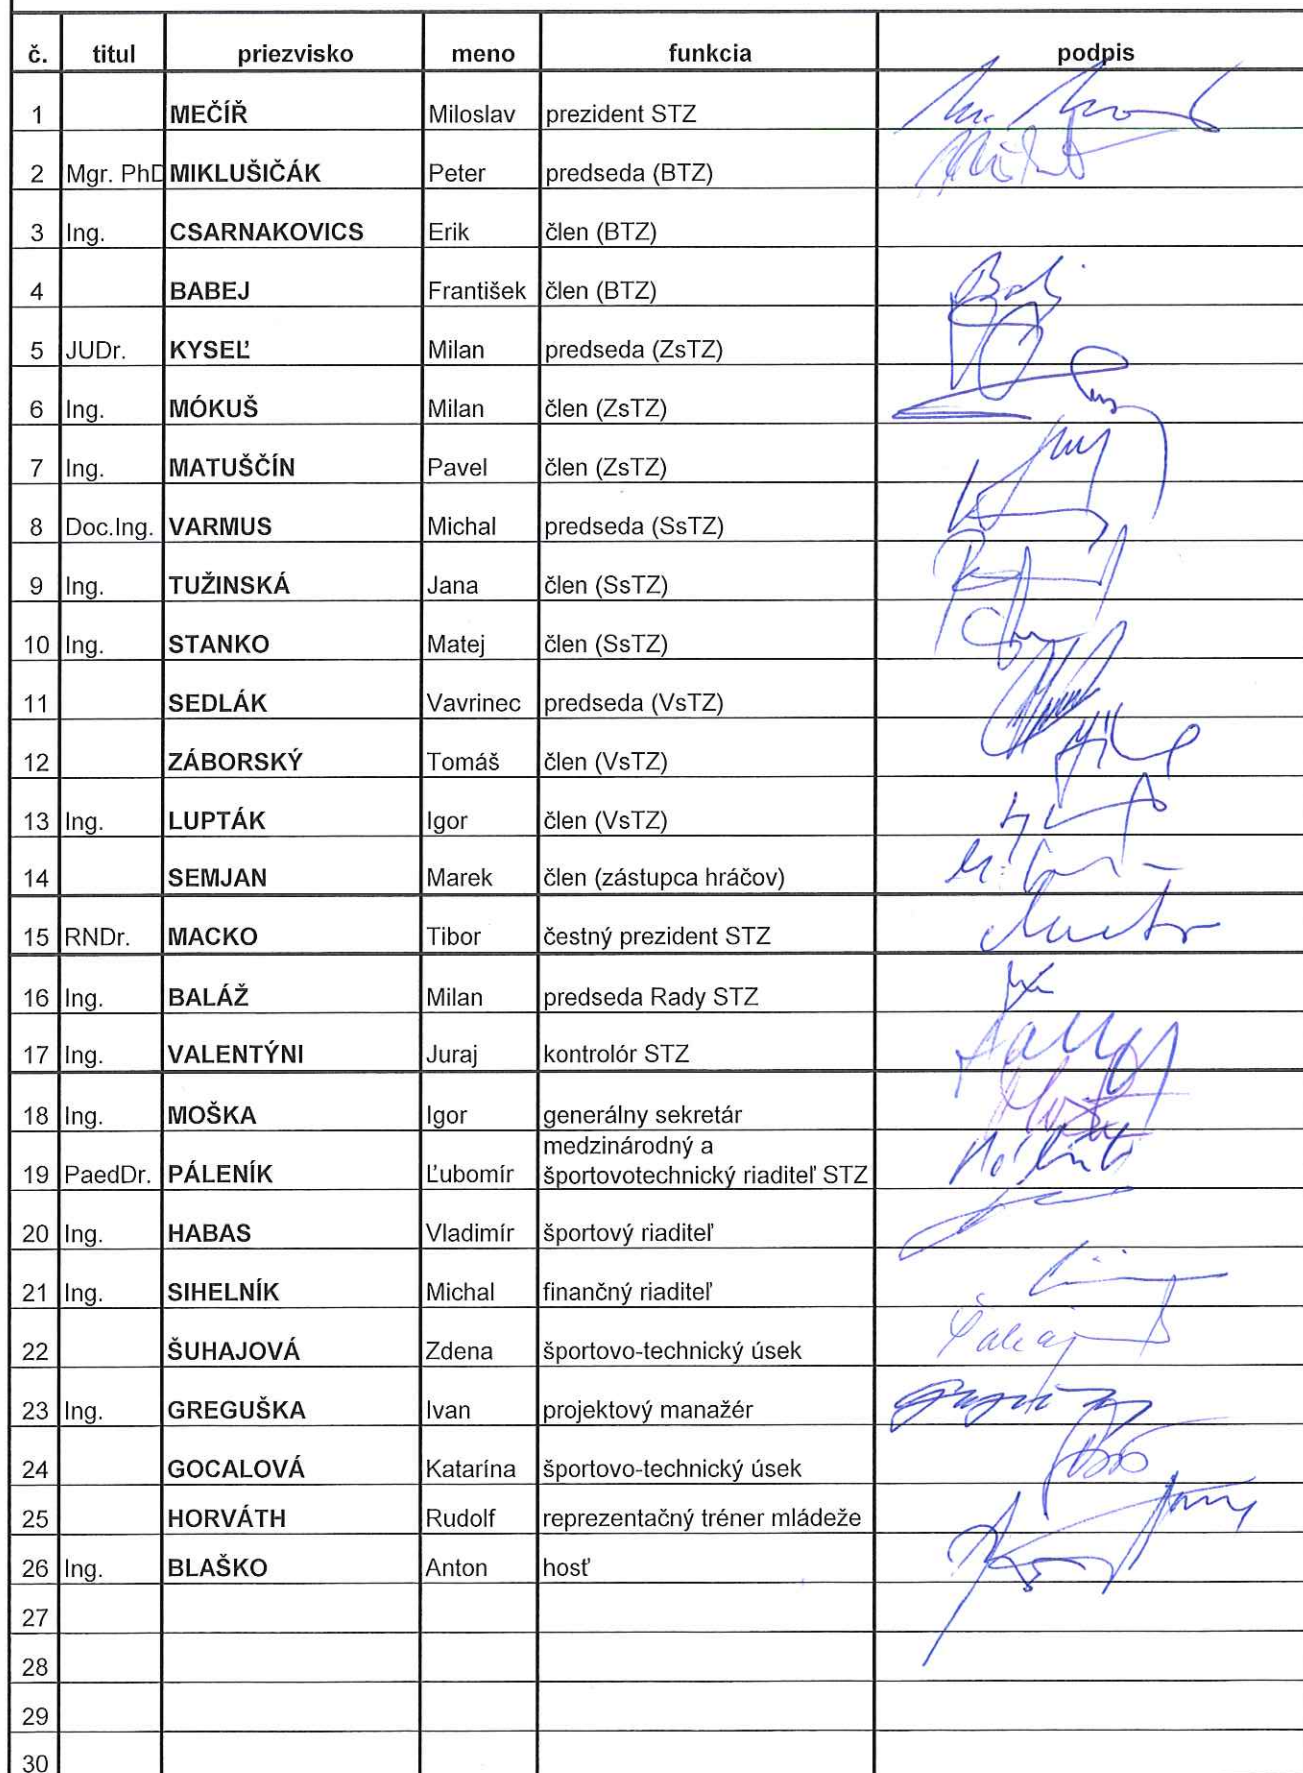 č. titul priezvisko meno funkcia podpis
1 MEČÍŘ Miloslav prezident STZ
2 Mgr. PhD MIKLUŠIČÁK Peter predseda (BTZ)
3 Ing. CSARNAKOVICS Erik člen (BTZ)
4 BABEJ František člen (BTZ)
5 JUDr. KYSEĽ Milan predseda (ZsTZ)
6 Ing. MÓKUŠ Milan člen (ZsTZ)
7 Ing. MATUŠČÍN Pavel člen (ZsTZ)
8 Doc.Ing. VARMUS Michal predseda (SsTZ)
9 Ing. TUŽINSKÁ Jana člen (SsTZ)
10 Ing. STANKO Matej člen (SsTZ)
11 SEDLÁK Vavrinec predseda (VsTZ)
12 ZÁBORSKÝ Tomáš člen (VsTZ)
13 Ing. LUPTÁK Igor člen (VsTZ)
14 SEMJAN Marek člen (zástupca hráčov)
15 RNDr. MACKO Tibor čestný prezident STZ
16 Ing. BALÁŽ Milan predseda Rady STZ
17 Ing. VALENTÝNI Juraj kontrolór STZ
18 Ing. MOŠKA Igor generálny sekretár
medzinárodný a
19 PaedDr. PÁLENÍK Ľubomír športovotechnický riaditeľ STZ
20 Ing. HABAS Vladimír športový riaditeľ
21 Ing. SIHELNÍK Michal finančný riaditeľ
22 ŠUHAJOVÁ Zdena športovo-technický úsek
23 Ing. GREGUŠKA Ivan projektový manažér
24 GOCALOVÁ Katarína športovo-technický úsek
25 HORVÁTH Rudolf reprezentačný tréner mládeže
26 Ing. BLAŠKO Anton hosť
27
28
29
30